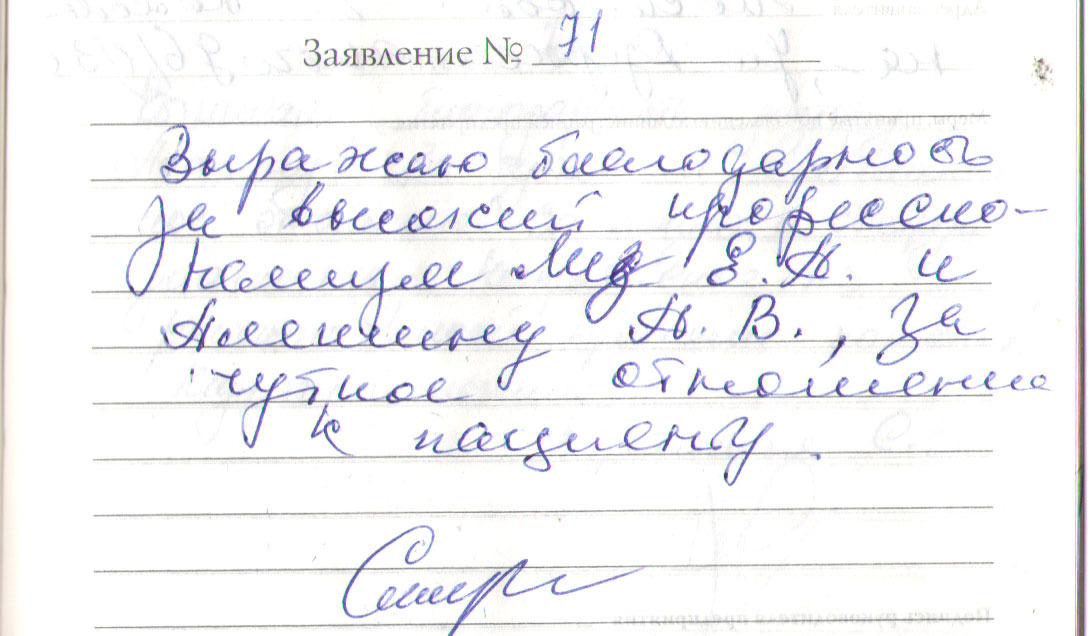 Заявление № 71
Выражаю благодарность
за высокий професcио-
нализм Е.А. и
Алешину А.В., за
чуткое отношение
к пациенту.